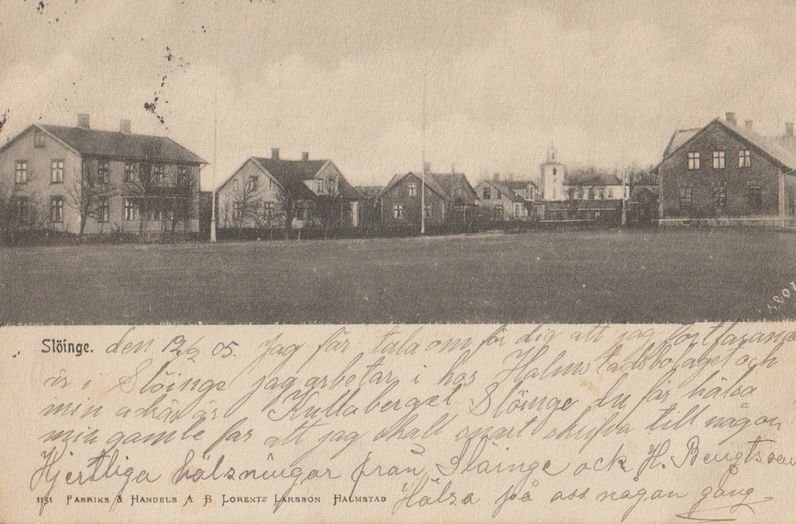 Slöinge. den 12/9 05. Jag får tala om för dig att jag fortfarande
är i Slöinge jag arbetar i hos Halmstadsbolaget och
min adräs är Kullaberget Slöinge du får hälsa
min gamle far att jag skall snart skriva till någon
Hjertliga hälsningar från Slöinge ock H. Bengtsson
Hälsa på oss någon gång
1151 FABRIKS & HANDELS A B LORENTZ LARSSON HALMSTAD